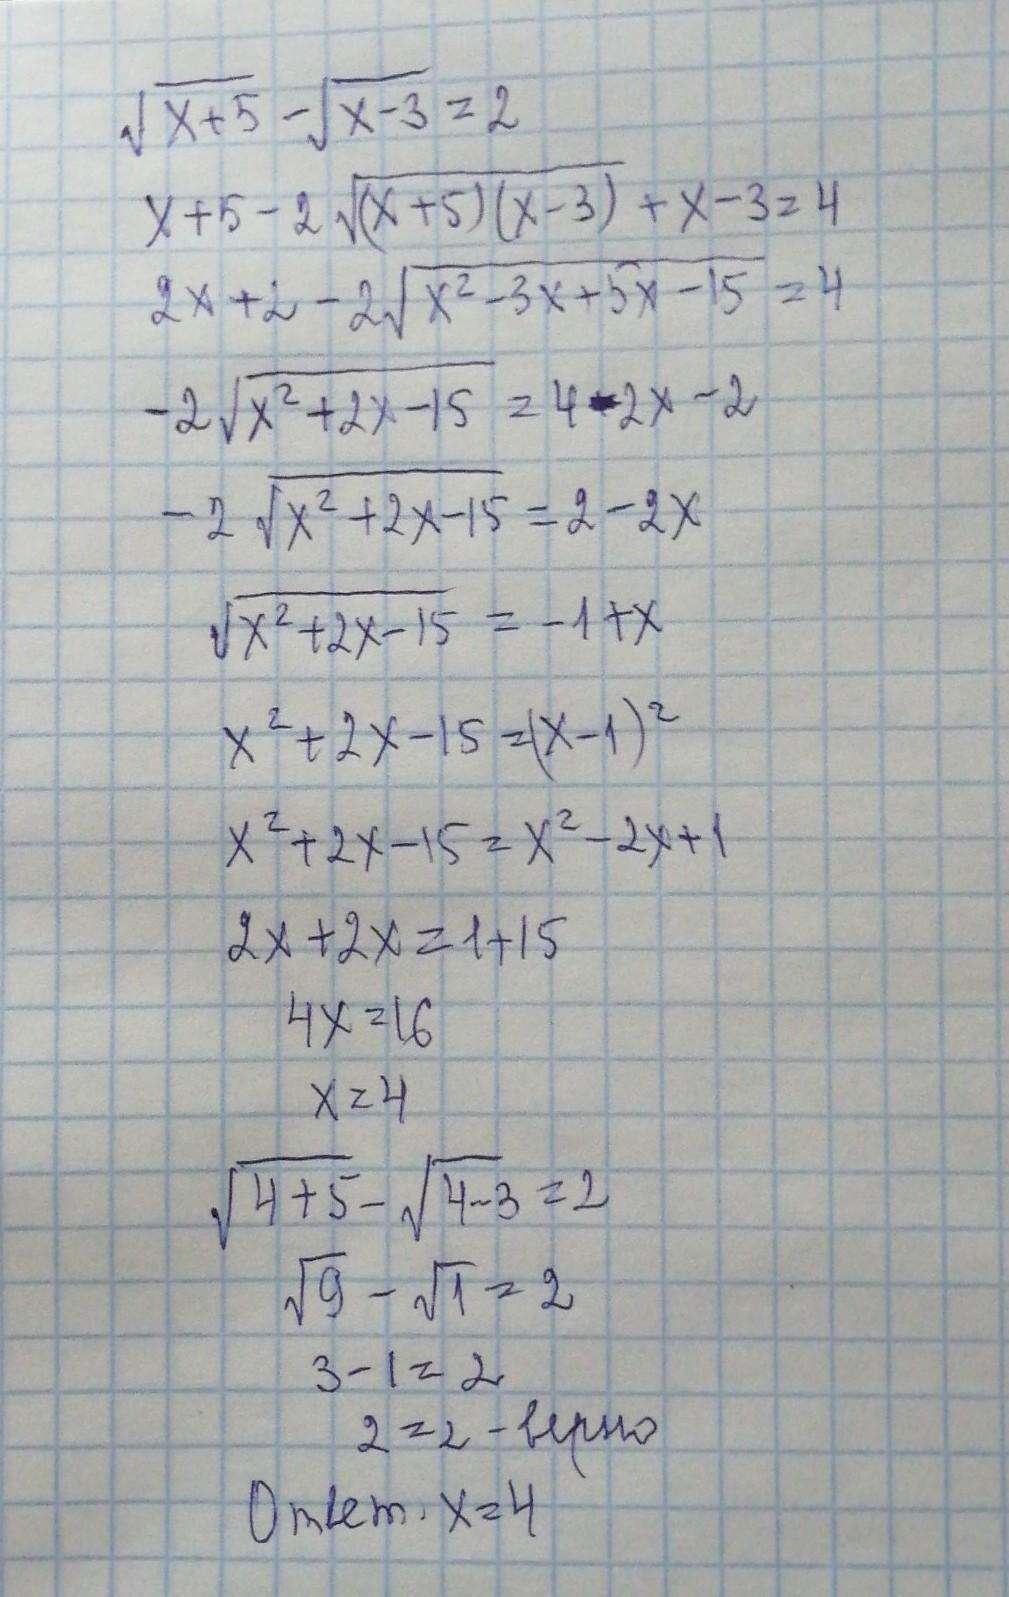 √(x+5) - √(x-3) = 2
x+5-2√((x+5)(x-3)) + x-3=4
2x+2-2√(x²-3x+5x-15) = 4
-2√(x²+2x-15) = 4-2x-2
-2√(x²+2x-15) = 2-2x
√(x²+2x-15) = -1+x
x²+2x-15=(x-1)²
x²+2x-15=x²-2x+1
2x+2x=1+15
4x=16
x=4
√(4+5) - √(4-3) = 2
√9 - √1 = 2
3-1=2
2=2 - верно
Ответ. x=4